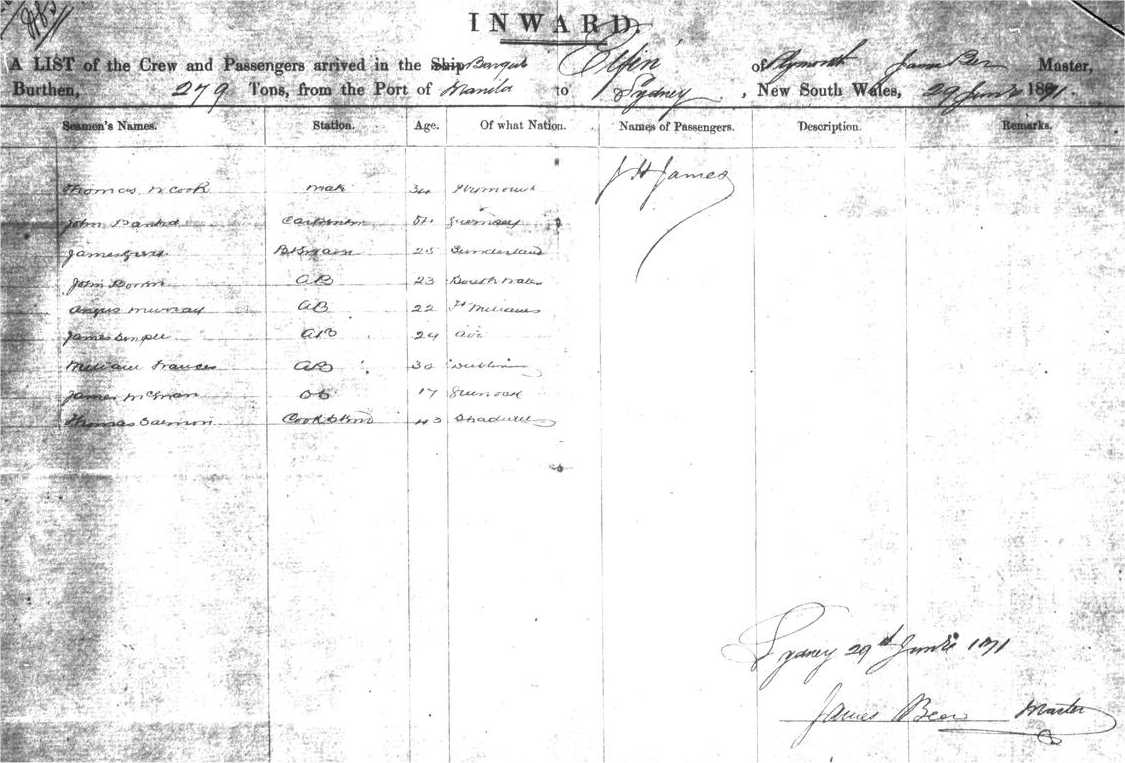 INWARD.
A LIST of the Crew and Passengers arrived in the Ship Elfin of Plymouth James Master,
Burthen, 279 Tons, from the Port of Manila to Sydney, New South Wales, 29 June 1871
Seamen's Names. Station. Age. Of what Nation. Names of Passengers. Description. Remarks.
J H James
Thomas Cook Mate 34 Plymouth
John Carpenter Guernsey
James 25 Sunderland
John AB 23 South Wales
Angus Murray AB 22
James AB 24
William Frances AB 30 Dublin
James OS 17 Greenock
Thomas Salmon Cook & 43 Shadwell
Sydney 29th June 1871
James Master